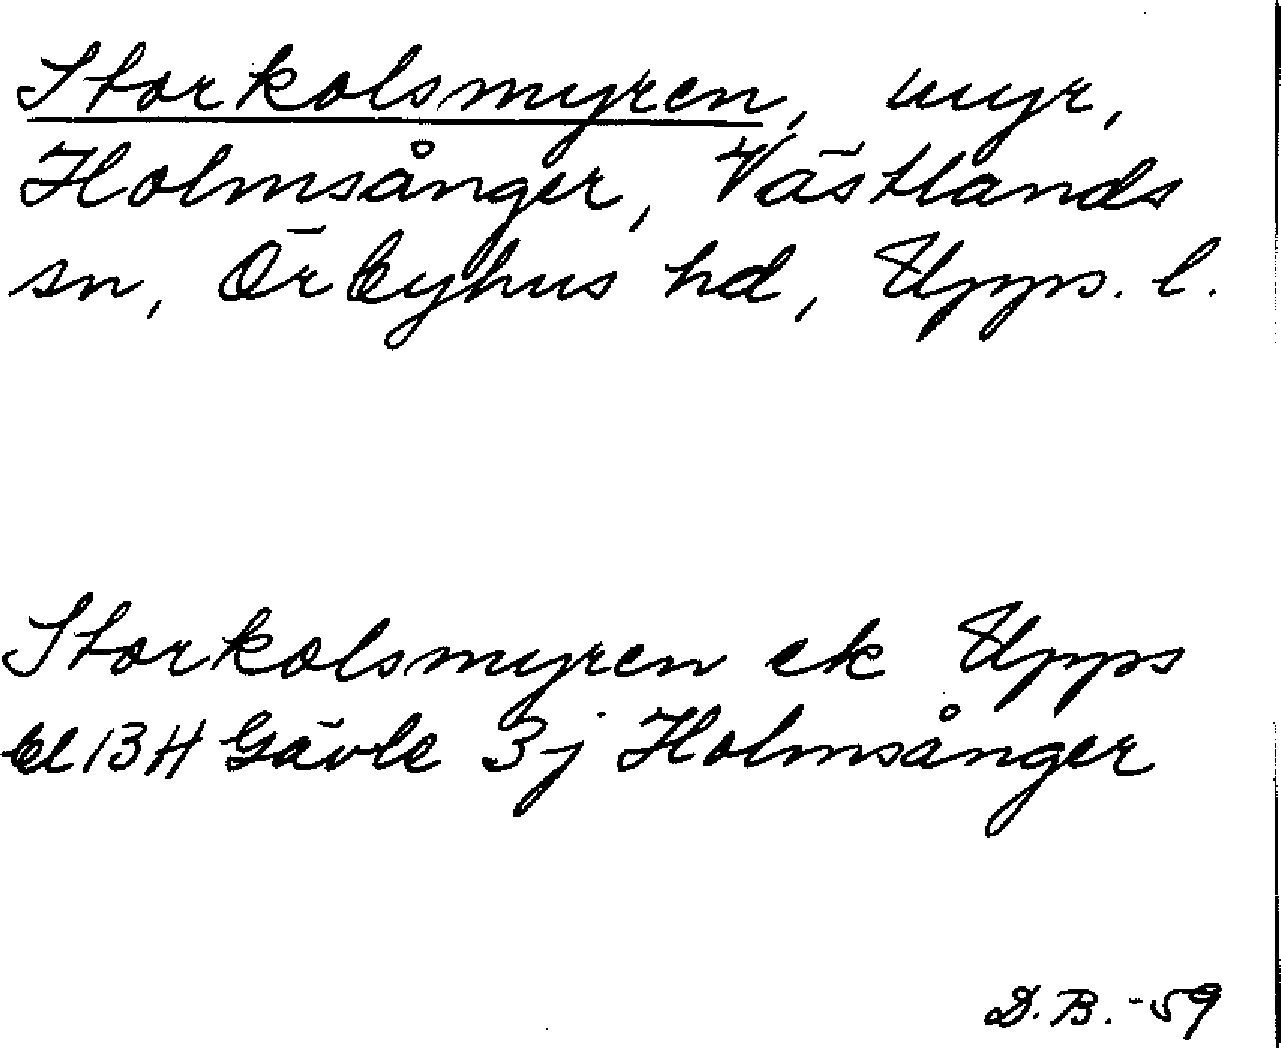 Storkolsmyren, myr,
Holmsånger, Västlands
sn, Örbyhus hd, Upps. l.
Storkolsmyren ek Upps
bl 13 H Gävle 3j Holmsånger
D.B. -59